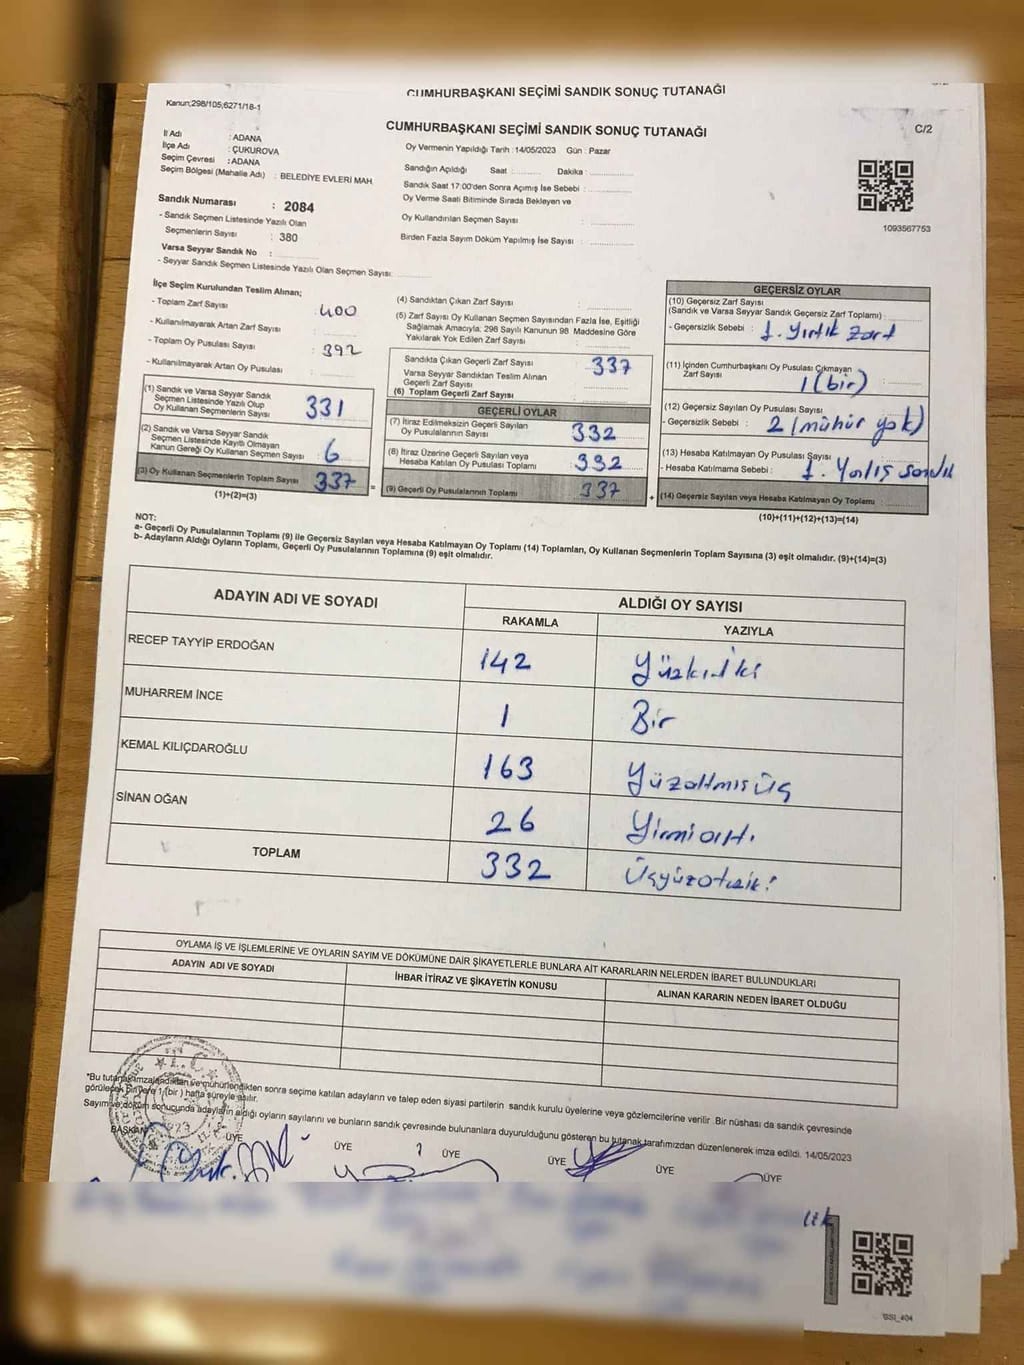 CUMHURBAŞKANI SEÇİMİ SANDIK SONUÇ TUTANAĞI
Kanun;298/105;6271/18-1
C/2
CUMHURBAŞKANI SEÇİMİ SANDIK SONUÇ TUTANAĞI
İl Adı : ADANA
İlçe Adı : ÇUKUROVA
Seçim Çevresi : ADANA
Seçim Bölgesi (Mahalle Adı) : BELEDİYE EVLERİ MAH.
Sandık Numarası : 2084
- Sandık Seçmen Listesinde Yazılı Olan
Seçmenlerin Sayısı : 380
Varsa Seyyar Sandık No :
- Seyyar Sandık Seçmen Listesinde Yazılı Olan Seçmen Sayısı:
Oy Vermenin Yapıldığı Tarih : 14/05/2023 Gün : Pazar
Sandığın Açıldığı Saat : Dakika :
Sandık Saat 17:00'den Sonra Açımış İse Sebebi :
Oy Verme Saati Bitiminde Sırada Bekleyen ve
Oy Kullandırılan Seçmen Sayısı :
Birden Fazla Sayım Döküm Yapılmış İse Sayısı :
1093567753
İlçe Seçim Kurulundan Teslim Alınan;
- Toplam Zarf Sayısı : 400
- Kullanılmayarak Artan Zarf Sayısı :
- Toplam Oy Pusulası Sayısı : 392
- Kullanılmayarak Artan Oy Pusulası :
(1) Sandık ve Varsa Seyyar Sandık
Seçmen Listesinde Yazılı Olup
Oy Kullanan Seçmenlerin Sayısı : 331
(2) Sandık ve Varsa Seyyar Sandık
Seçmen Listesinde Kayıtlı Olmayan
Kanun Gereği Oy Kullanan Seçmen Sayısı : 6
(3) Oy Kullanan Seçmenlerin Toplam Sayısı : 337
(1)+(2)=(3)
(4) Sandıktan Çıkan Zarf Sayısı :
(5) Zarf Sayısı Oy Kullanan Seçmen Sayısından Fazla İse, Eşitliği
Sağlamak Amacıyla; 298 Sayılı Kanunun 98. Maddesine Göre
Yakılarak Yok Edilen Zarf Sayısı :
Sandıkta Çıkan Geçerli Zarf Sayısı : 337
Varsa Seyyar Sandıktan Teslim Alınan
Geçerli Zarf Sayısı :
(6) Toplam Geçerli Zarf Sayısı :
GEÇERLİ OYLAR
(7) İtiraz Edilmeksizin Geçerli Sayılan
Oy Pusulalarının Sayısı : 332
(8) İtiraz Üzerine Geçerli Sayılan veya
Hesaba Katılan Oy Pusulası Toplamı : 332
= (9) Geçerli Oy Pusulalarının Toplamı : 337 +
GEÇERSİZ OYLAR
(10) Geçersiz Zarf Sayısı
(Sandık ve Varsa Seyyar Sandık Geçersiz Zarf Toplamı) :
- Geçersizlik Sebebi : 1. Yırtık Zarf
(11) İçinden Cumhurbaşkanı Oy Pusulası Çıkmayan
Zarf Sayısı : 1 (bir)
(12) Geçersiz Sayılan Oy Pusulası Sayısı
- Geçersizlik Sebebi : 2 (mühür yok)
(13) Hesaba Katılmayan Oy Pusulası Sayısı :
- Hesaba Katılmama Sebebi : 1. Yanlış sandık
(14) Geçersiz Sayılan veya Hesaba Katılmayan Oy Toplamı :
(10)+(11)+(12)+(13)=(14)
NOT:
a- Geçerli Oy Pusulalarının Toplamı (9) ile Geçersiz Sayılan veya Hesaba Katılmayan Oy Toplamı (14) Toplamları, Oy Kullanan Seçmenlerin Toplam Sayısına (3) eşit olmalıdır. (9)+(14)=(3)
b- Adayların Aldığı Oyların Toplamı, Geçerli Oy Pusulalarının Toplamına (9) eşit olmalıdır.
ADAYIN ADI VE SOYADI
ALDIĞI OY SAYISI
RAKAMLA YAZIYLA
RECEP TAYYİP ERDOĞAN 142 Yüzkırkiki
MUHARREM İNCE 1 Bir
KEMAL KILIÇDAROĞLU 163 Yüzaltmışüç
SİNAN OĞAN 26 Yirmialtı
TOPLAM 332 Üçyüzotuziki
OYLAMA İŞ VE İŞLEMLERİNE VE OYLARIN SAYIM VE DÖKÜMÜNE DAİR ŞİKAYETLERLE BUNLARA AİT KARARLARIN NELERDEN İBARET BULUNDUKLARI
ADAYIN ADI VE SOYADI İHBAR İTİRAZ VE ŞİKAYETİN KONUSU ALINAN KARARIN NEDEN İBARET OLDUĞU
T.C.
*Bu tutanak imzalandıktan ve mühürlendikten sonra seçime katılan adayların ve talep eden siyasi partilerin sandık kurulu üyelerine veya gözlemcilerine verilir. Bir nüshası da sandık çevresinde
görülecek bir yere 1 (bir) hafta süreyle asılır.
Sayım ve döküm sonucunda adayların aldığı oyların sayılarını ve bunların sandık çevresinde bulunanlara duyurulduğunu gösteren bu tutanak tarafımızdan düzenlenerek imza edildi. 14/05/2023
BAŞKAN ÜYE ÜYE ÜYE ÜYE ÜYE ÜYE
BSI_404